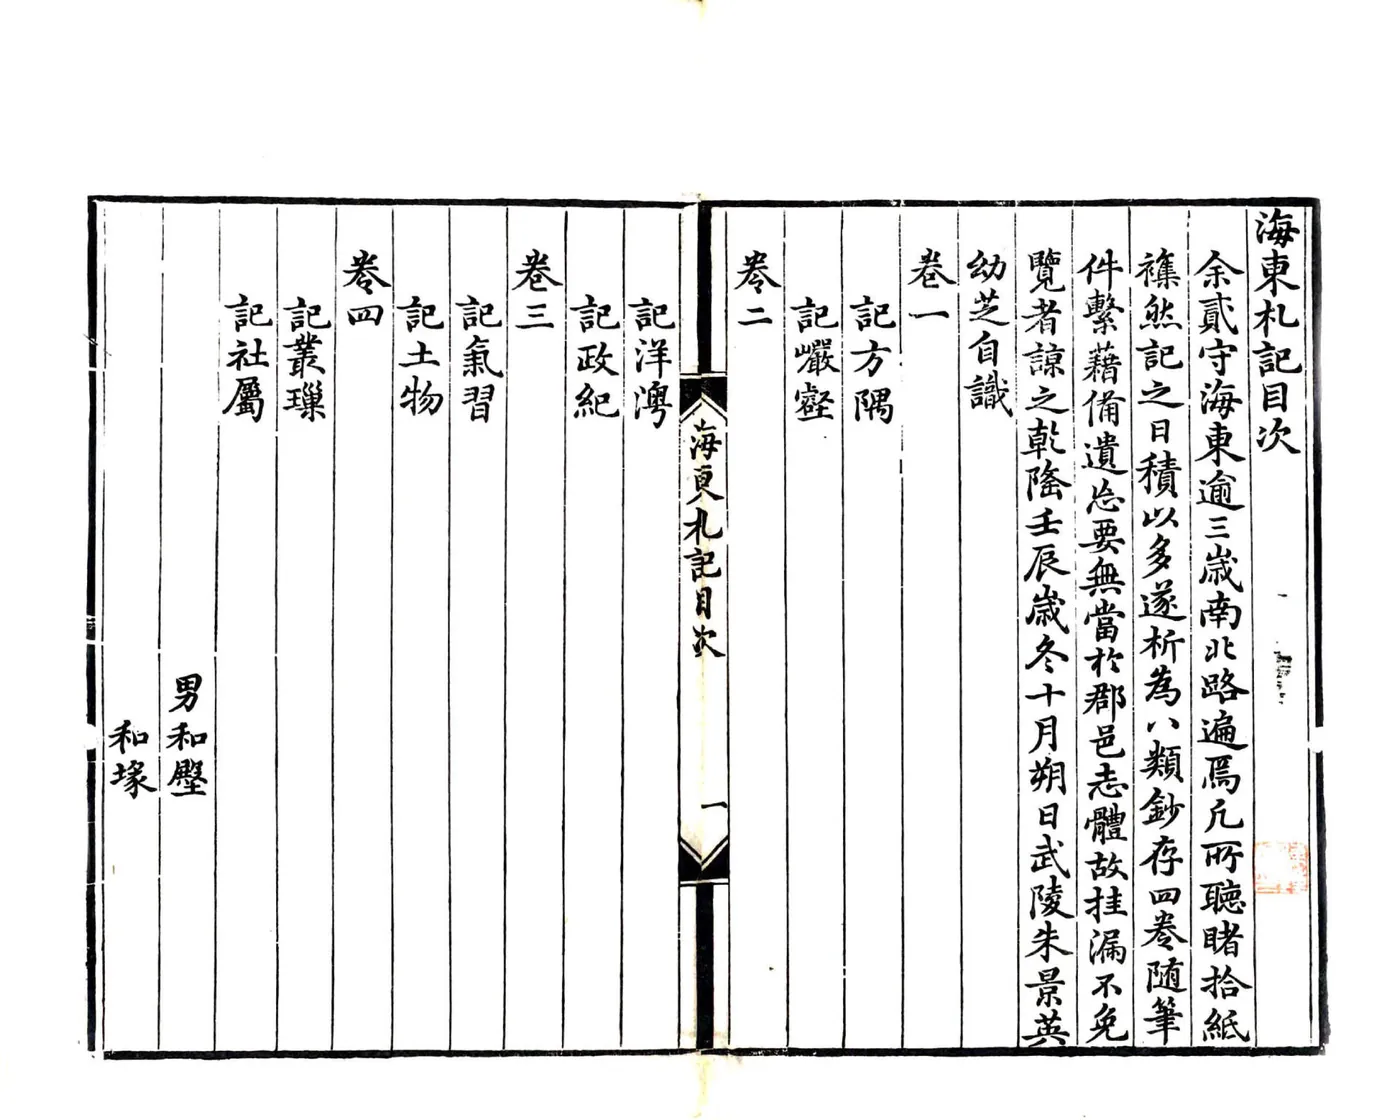 海東札記目次
余貳守海東逾三歲南北路遍焉凡所聽睹拾紙
襍然記之日積以多遂析為八類鈔存四卷随筆
件繫藉備遺忘要無當於郡邑志體故挂漏不免
覽者諒之乾隆壬辰歲冬十月朔日武陵朱景英
幼芝自識
卷一
記方隅
記巖壑
卷二
海東札記目次
一
記洋澳
記政紀
卷三
記氣習
記土物
卷四
記叢璅
記社屬
男和壂
和塚